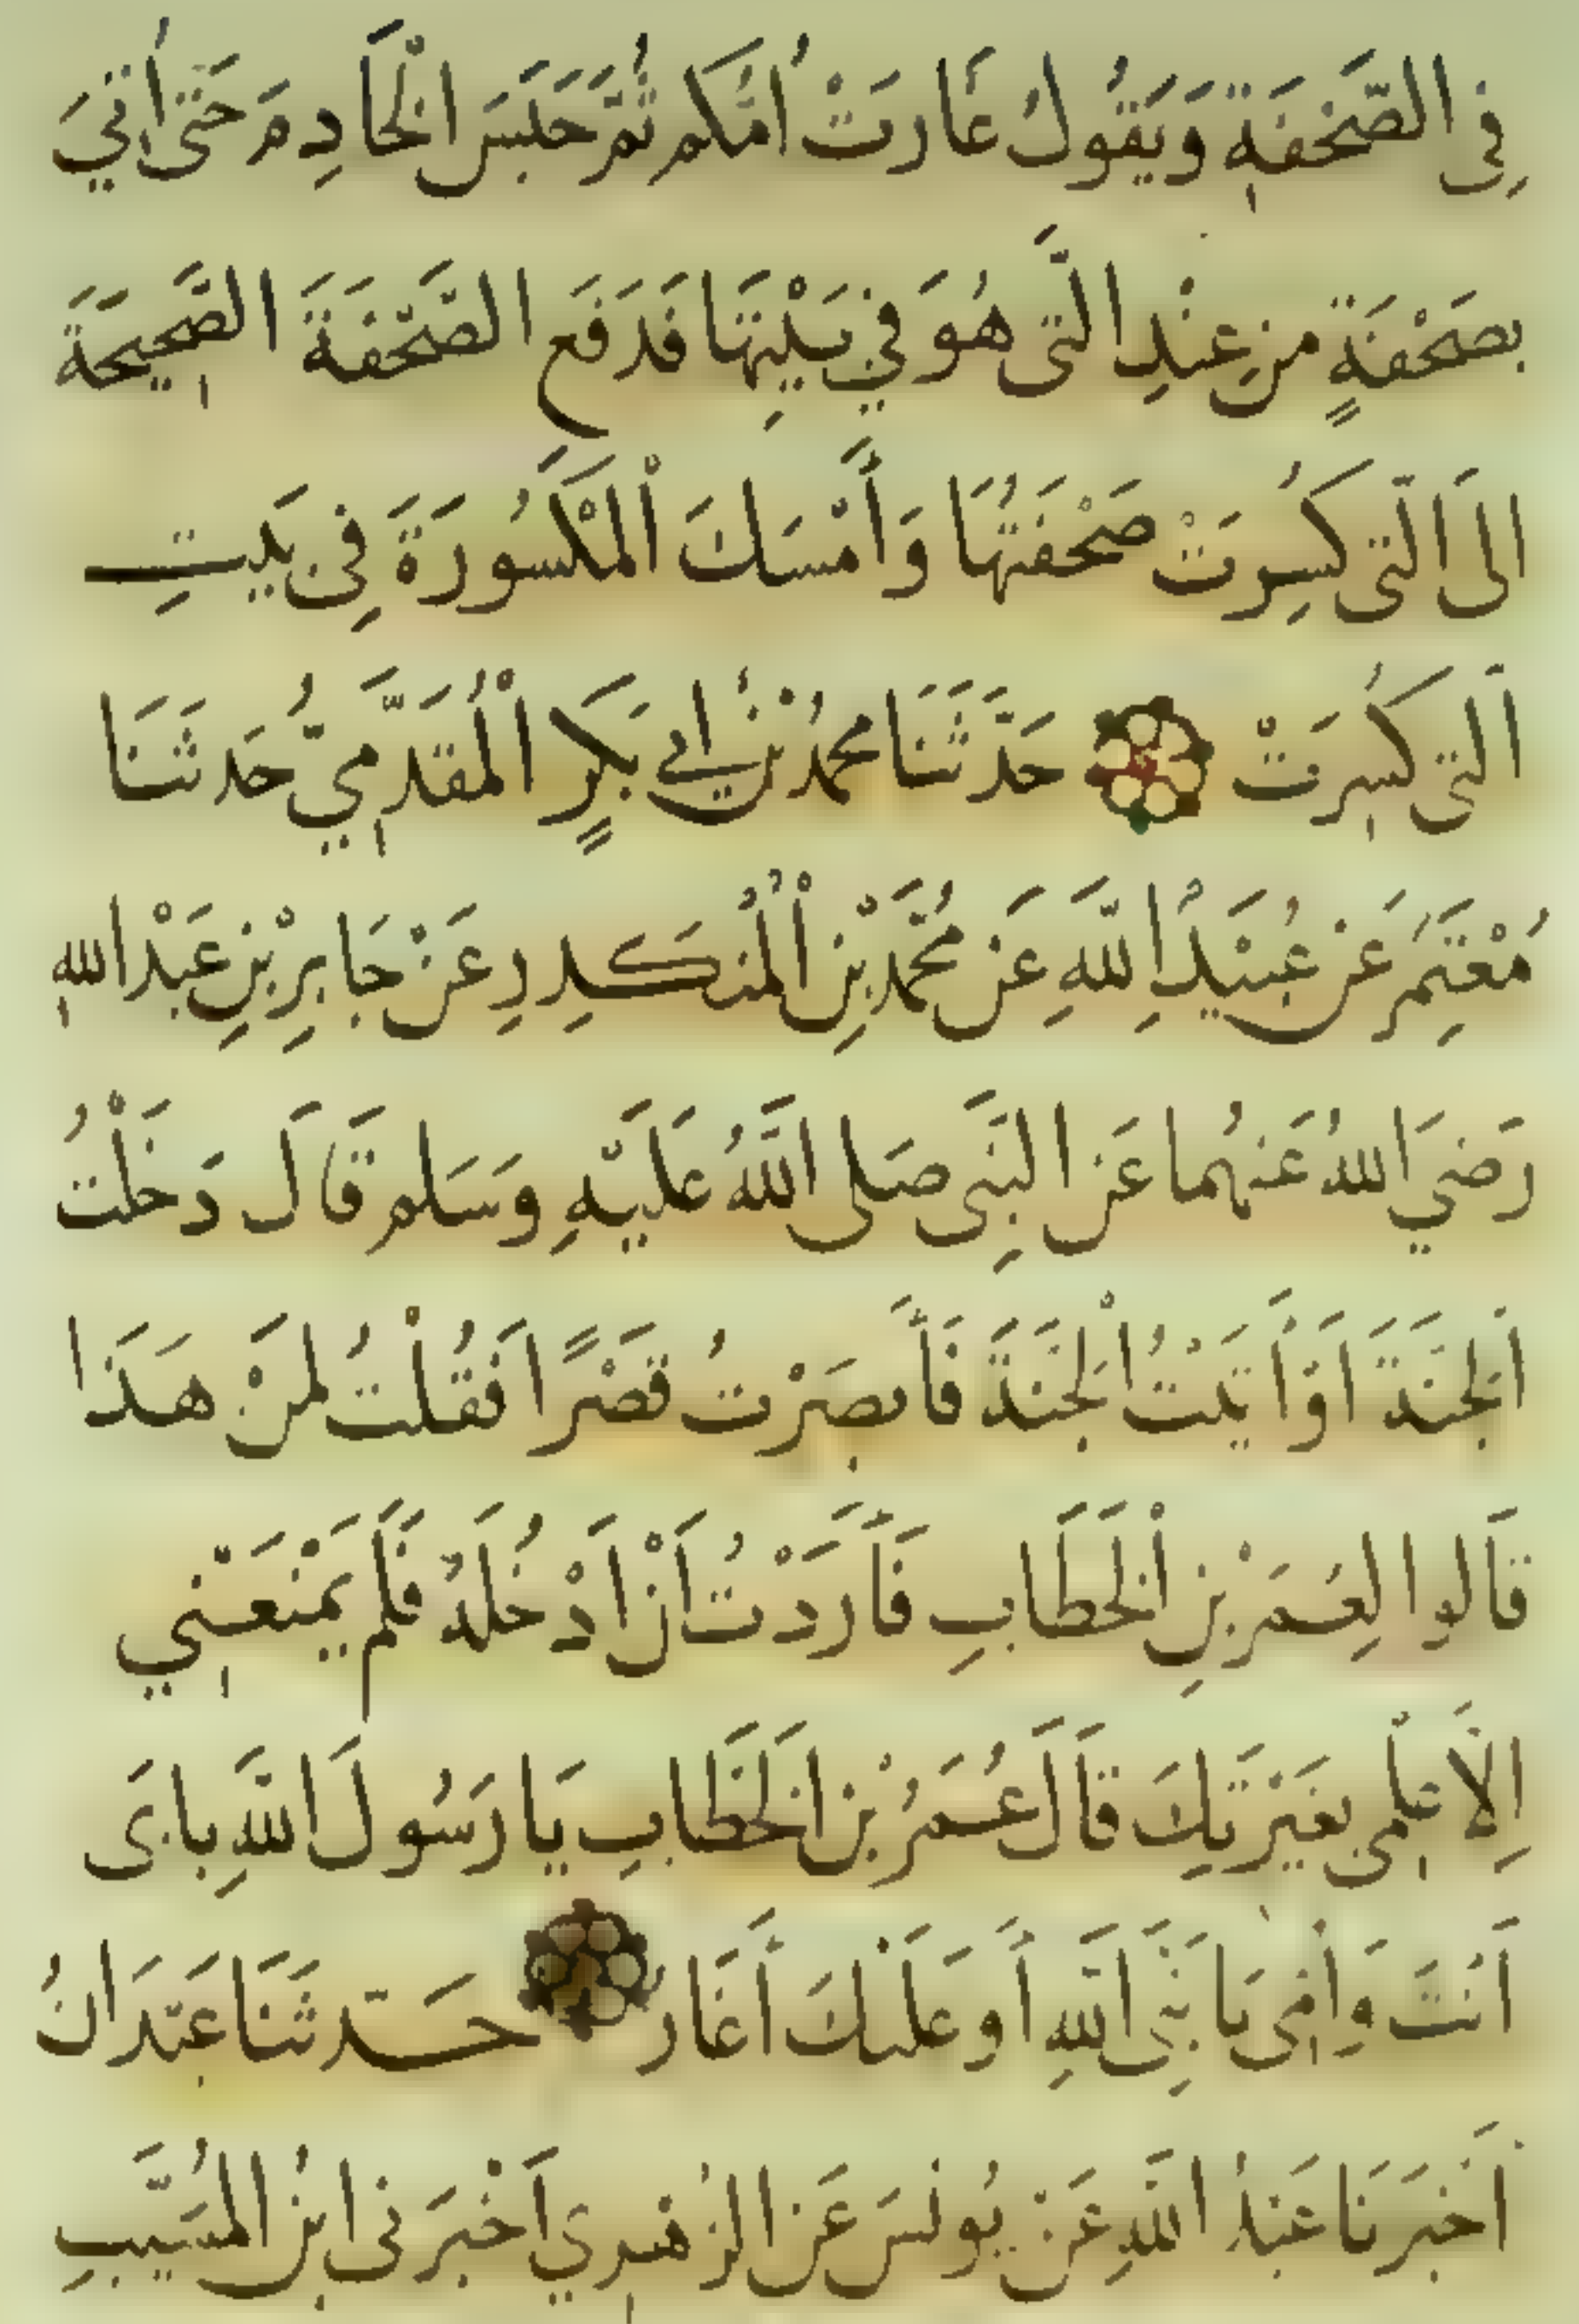 فِي الصَّحْفَةِ وَيَقُولُ غَارَتْ أُمُّكم ثُمَّ حَبَسَ الْخَادِمَ حَتَّى أُتِيَ
بصَحْفَةٍ مِنْ عِنْدِ الَّتى هُوَ فِي بَيْتِهَا فَدَفَعَ الصَّحْفَةَ الصَّحِيحَةَ
الَى الَّتى كُسِرَتْ صَحْفَتُهَا وَأَمْسَكَ الْمَكْسُورَةَ فِى بَيتِ
اَلتى كُسِرَتْ حَدَّثَنَا محمدُ بْنُ أَبي بَكرٍ الْمُقَدَّمِيُّ حَدثَنَا
مُعْتَمِرُ عَنْ عُبَيْدِ اللَّهِ عَنْ مُحَمَّدِ بْنِ الْمُنكَدِرِ عَنْ جَابِرِ بْنِ عَبْدِ اللهِ
رَضيَ اللهُ عَنهُما عَنِ النَّبِى صَلى اللَّهُ عَلَيْهِ وَسَلم قَالَ دَخَلْتُ
اَلجَنَّةَ اَوْ أَتَيْتُ الْجَنَّةَ فَأَبصَرْتُ قَصْرًا فَقُلْتُ لمَنْ هَذَا
قَالوا لِعُمَرَ بْنِ الْخَطَّابِ فَأَرَدْتُ اَنْ اَدْخُلَهُ فَلَم يَمْنَعْنِي
اِلَّا عِلْمِى بغَيْرَتِكَ قَالَ عُمَرُ بْنُ الخَطَّابِ يَا رَسُولَ اللَّهِ بابى
اَنتَ وَاُمِى يَا نَبِىَّ اللَّهِ أَوَ عَلَيْكَ أَغَار حَدّثنَا عَبْدَانُ
اَخبَرَنَا عَبْدُ اللَّهِ عَنْ يُونُسَ عَنِ الزُهْرِي اَخْبَرَنى ابْنُ المُسَيَّبِ